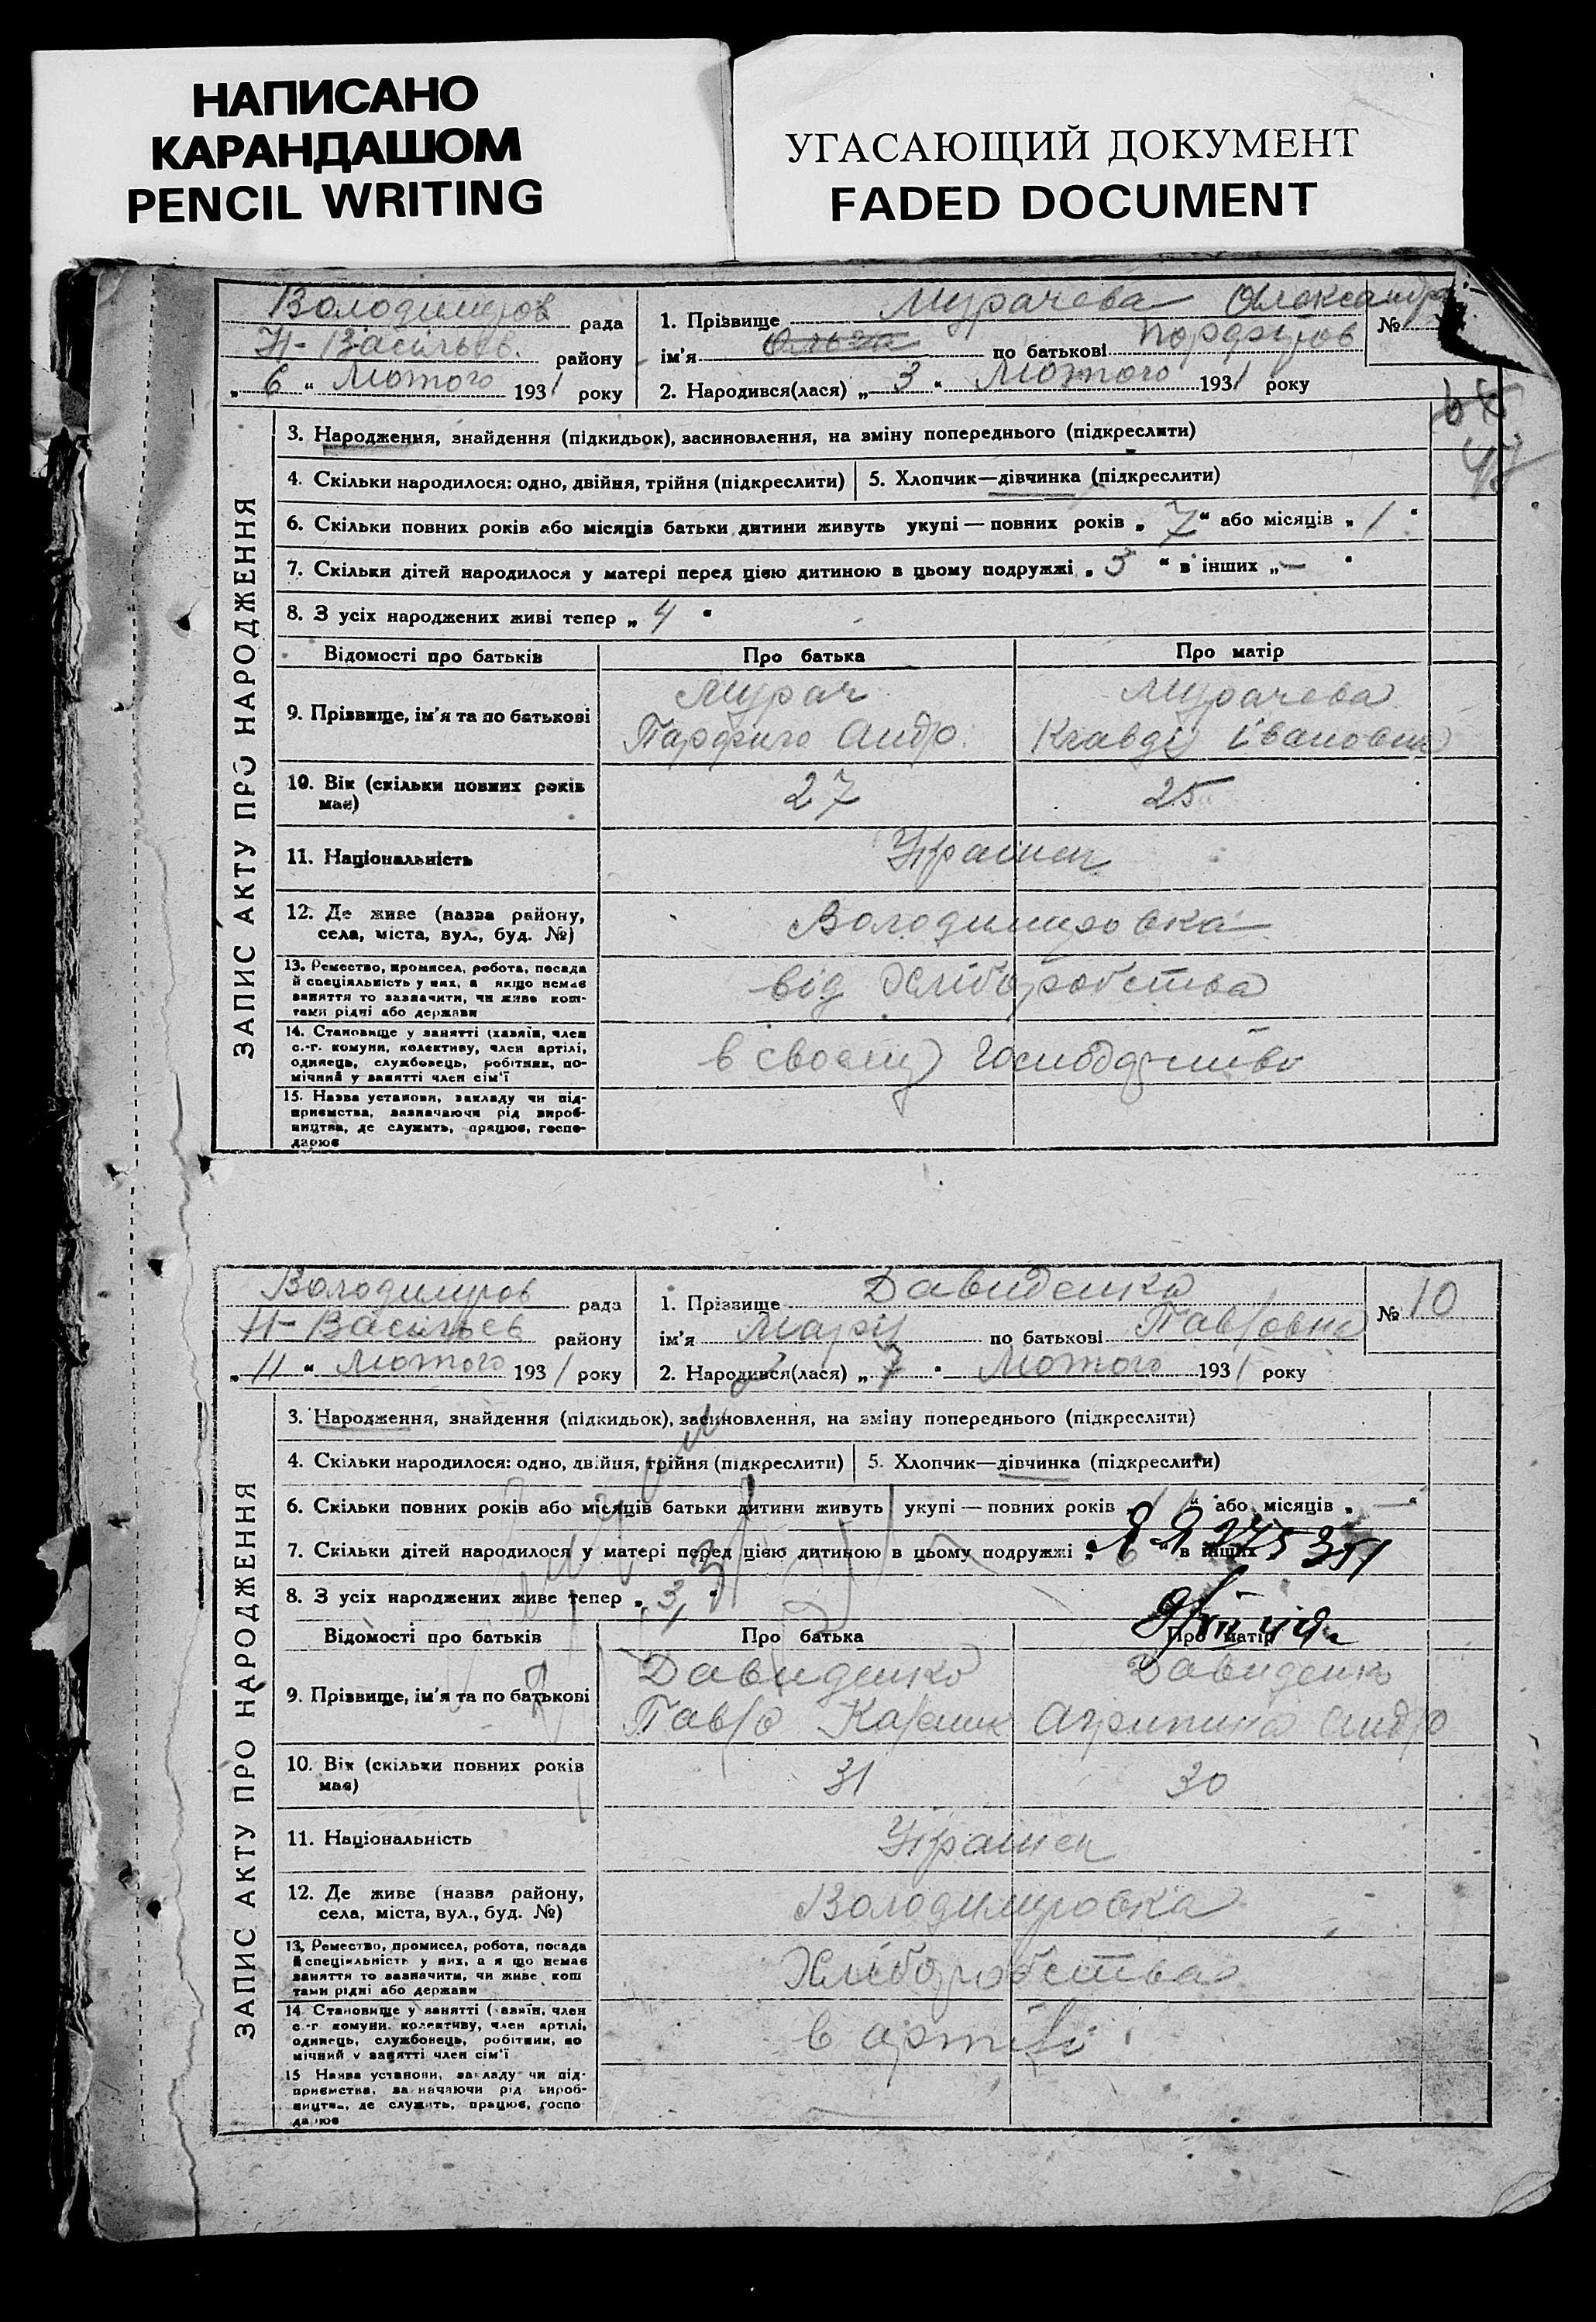 НАПИСАНО
КАРАНДАШОМ
PENCIL WRITING
УГАСАЮЩИЙ ДОКУМЕНТ
FADED DOCUMENT
Володимиров рада
Н-Васильев. району
„ 6 “ Лютого 1931 року
1. Прізвище Мурачева Олександра
ім'я Ольга по батькові Порфиров
№
2. Народився(лася) „ 3 “ Лютого 1931 року
ЗАПИС АКТУ ПРО НАРОДЖЕННЯ
3. Народження, знайдення (підкидьок), засиновлення, на зміну попереднього (підкреслити)
4. Скільки народилося: одно, двійня, трійня (підкреслити) 5. Хлопчик—дівчинка (підкреслити)
6. Скільки повних років або місяців батьки дитини живуть укупі — повних років „ 7 “ або місяців „ 1 “
7. Скільки дітей народилося у матері перед цією дитиною в цьому подружжі „ 3 “ в інших „ — “
8. З усіх народжених живі тепер „ 4 “
Відомості про батьків Про батька Про матір
9. Прізвище, ім'я та по батькові
Мурач Мурачева
Андр. Клавдія Івановна
10. Вік (скільки повних років має) 27 25
11. Національність Украінец
12. Де живе (назва району, села, міста, вул., буд. №) Володимировка
13. Ремество, промисел, робота, посада
й спеціяльність у них, а якщо немає
заняття то зазначити, чи живе кош-
тами рідні або держави
від Хліборобства
14. Становище у занятті (хазяїн, член
с.-г. комуни, колективу, член артілі,
одинець, службовець, робітник, по-
мічний у занятті член сім'ї
в своему Господарстві
15. Назва установи, закладу чи під-
приємства, зазначаючи рід вироб-
ництва, де служить, працює, госпо-
дарює
Володимиров рада
Н-Васильев району
„ 11 “ Лютого 1931 року
1. Прізвище Давиденко
ім'я Марія по батькові Павловна
№ 10
2. Народився(лася) „ 7 “ Лютого 1931 року
ЗАПИС АКТУ ПРО НАРОДЖЕННЯ
3. Народження, знайдення (підкидьок), засиновлення, на зміну попереднього (підкреслити)
4. Скільки народилося: одно, двійня, трійня (підкреслити) 5. Хлопчик—дівчинка (підкреслити)
6. Скільки повних років або місяців батьки дитини живуть укупі — повних років „ 11 “ або місяців „ — “
7. Скільки дітей народилося у матері перед цією дитиною в цьому подружжі „ “ в інших
8. З усіх народжених живе тепер „ 3 “
Відомості про батьків Про батька Про матір
9. Прізвище, ім'я та по батькові
Давиденко Давиденко
Павло Агрипина Андр
10. Вік (скільки повних років має) 31 30
11. Національність Украінец
12. Де живе (назва району, села, міста, вул., буд. №) Володимировка
13. Ремество, промисел, робота, посада
й спеціяльність у них, а я що немає
заняття то зазначити, чи живе кош
тами рідні або держави
Хліборобства
14. Становище у занятті ( азяїн, член
с.-г комуни, колективу, член артілі,
одинець, службовець, робітник, по
мічний у занятті член сім'ї
в артілі
15 Назва установи, закладу чи під-
приємства, за начаючи рід вироб-
ництва, де служить, працює, госпо
дарює